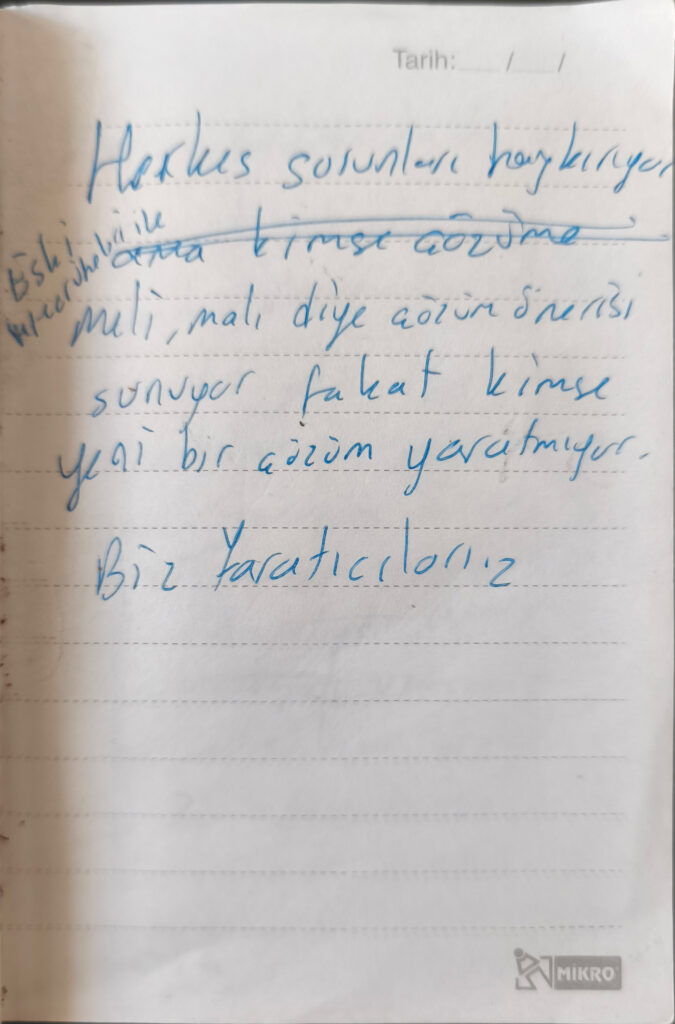 Tarih: / /
Herkes sorunları haykırıyor
ama kimse çözüme
Eski
ile
meli, malı diye çözüm önerisi
sunuyor fakat kimse
yeni bir çözüm yaratmıyor.
Biz Yaratıcılarız
MİKRO